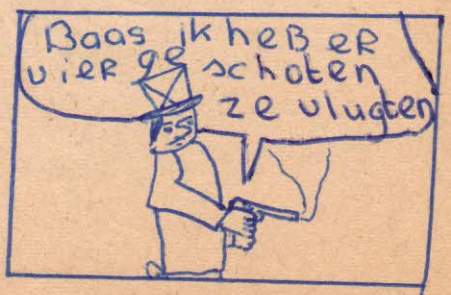 Baas ik heB eR
vier ge schoten
ze vlugten